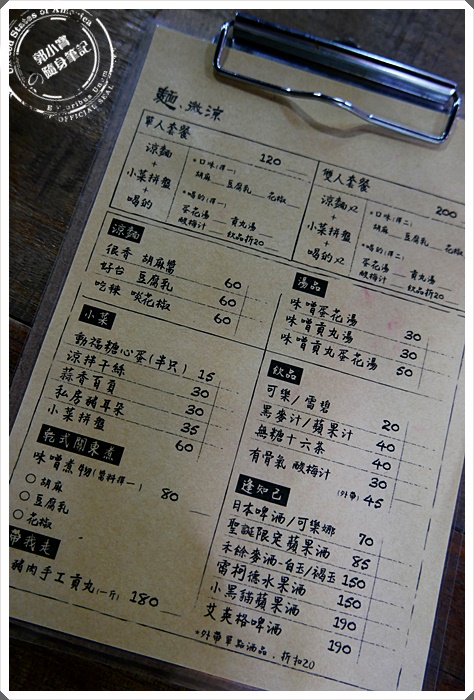 United States of America
郭小寶
の隨身筆記
E Pluribus Unum
OFFICIAL SEAL
麵、微涼
單人套餐 120
涼麵
+
小菜拼盤
+
喝的
*口味(擇一)
胡麻 豆腐乳 花椒
*喝的(擇一)
蛋花湯 貢丸湯
酸梅汁 飲品折20
雙人套餐 200
涼麵x2
+
小菜拼盤
+
喝的x2
*口味(擇二)
胡麻 豆腐乳 花椒
*喝的(擇二)
蛋花湯 貢丸湯
酸梅汁 飲品折20
涼麵
很香 胡麻醬 60
好台 豆腐乳 60
吃辣 啖花椒 60
小菜
動福糖心蛋(半只) 15
涼拌干絲 30
蒜香百頁 30
私房豬耳朵 35
小菜拼盤 60
乾式關東煮
味噌煮物(醬料擇一) 80
○胡麻
○豆腐乳
○花椒
帶我走
豬肉手工貢丸(一斤) 180
湯品
味噌蛋花湯 30
味噌貢丸湯 30
味噌貢丸蛋花湯 50
飲品
可樂/雪碧 20
黑麥汁/蘋果汁 40
無糖十六茶 40
有骨氣 酸梅汁 (外帶)45
逢知己
日本啤酒/可樂娜 70
聖誕限定蘋果酒 85
禾餘麥酒-白玉/褐玉 150
雷柯德水果酒 150
小黑貓蘋果酒 190
艾英格啤酒 190
*外帶單點酒品,折扣20